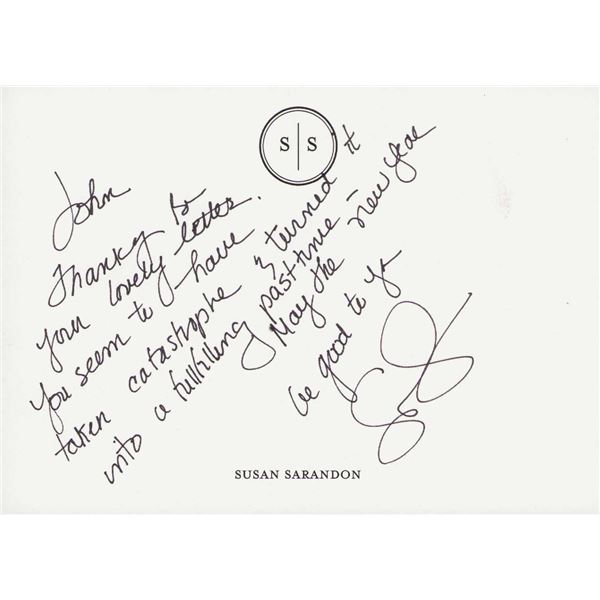 S | S
John
Thanks for
your lovely letter.
You seem to have
taken catastrophe & turned it
into a fulfilling pasttime –
May the new year
be good to you
SS
SUSAN SARANDON